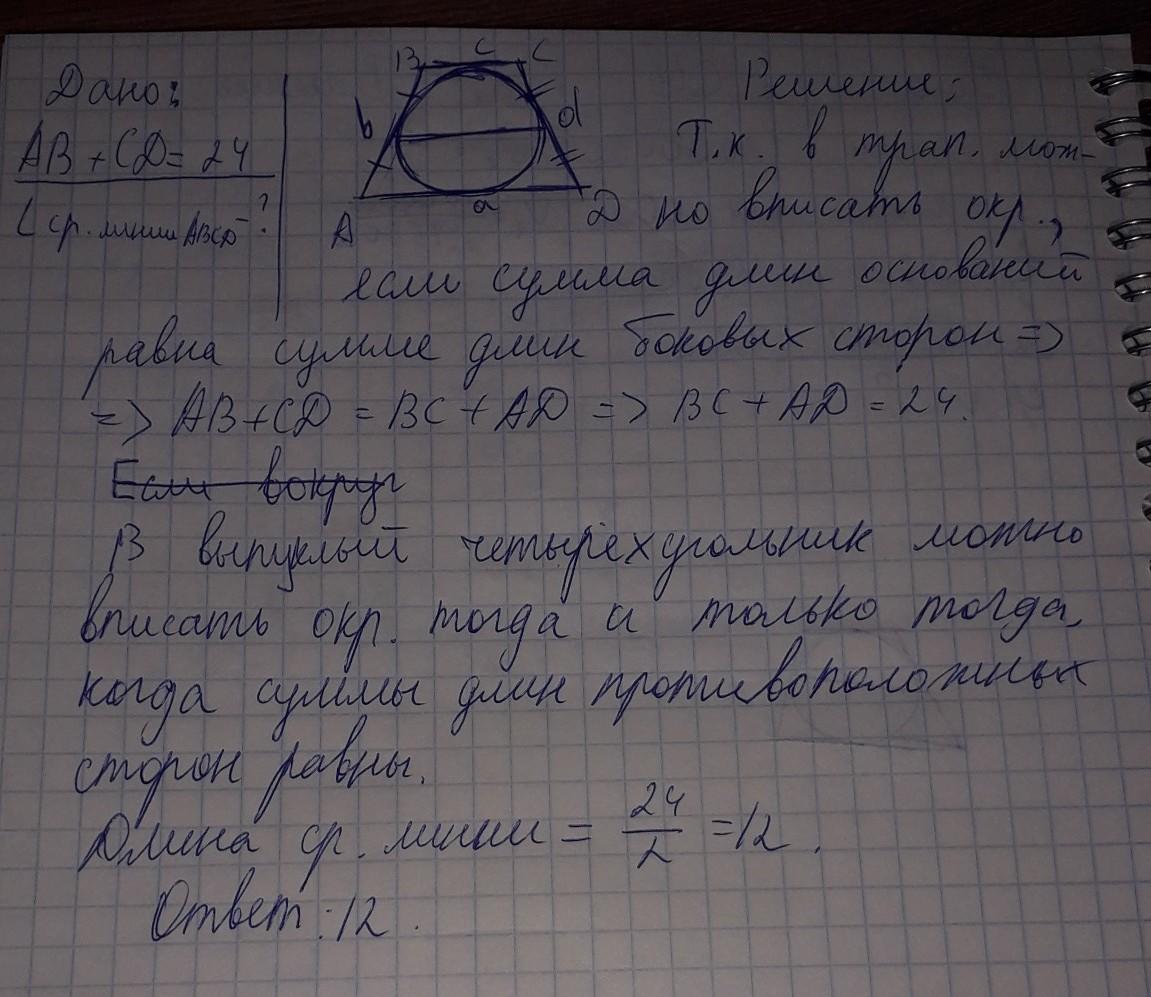 Дано:
AB + CD = 24
L ср. линии ABCD - ?
B c C
b d
A a D
Решение:
Т.к. в трап. мож-
но вписать окр.,
если сумма длин оснований
равна сумме длин боковых сторон =>
=> AB + CD = BC + AD => BC + AD = 24.
Если вокруг
В выпуклый четырёхугольник можно
вписать окр. тогда и только тогда,
когда суммы длин противоположных
сторон равны.
Длина ср. линии = 24/2 = 12.
Ответ: 12.